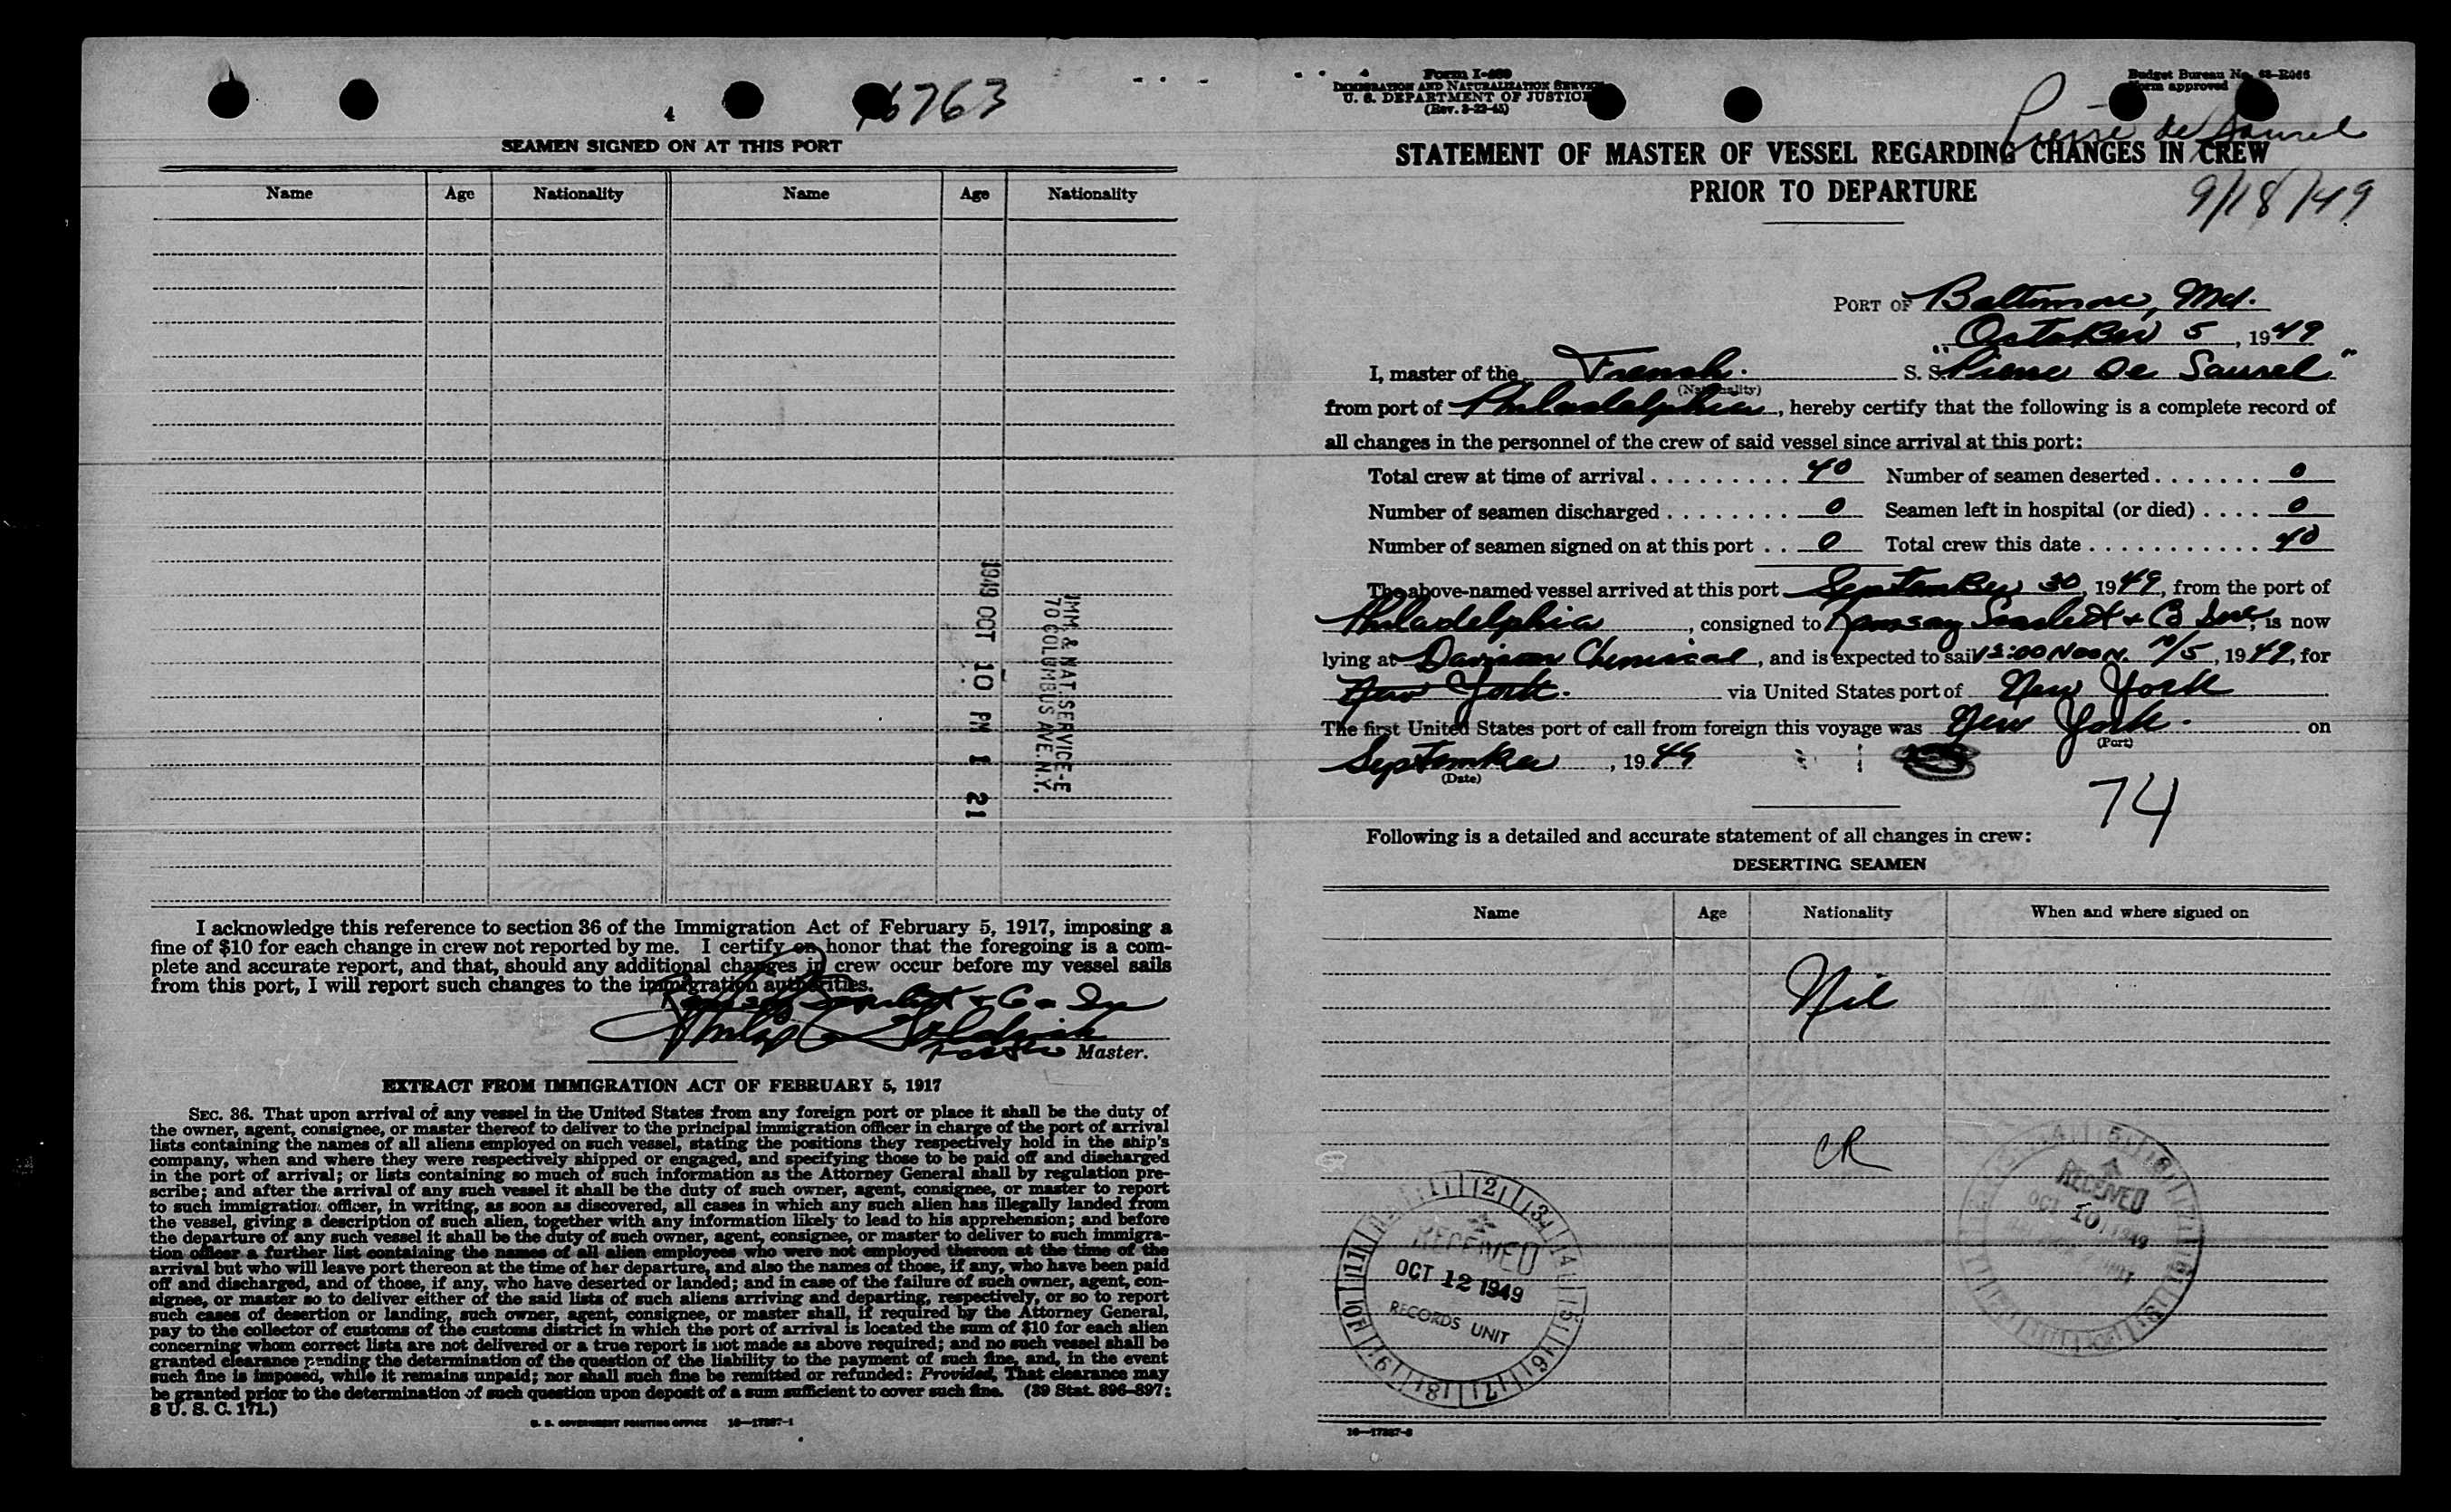 4
6763
SEAMEN SIGNED ON AT THIS PORT
Name Age Nationality Name Age Nationality
1949 OCT 10 PM 1 21
IMM. & NAT. SERVICE-E
70 COLUMBUS AVE. N.Y.
I acknowledge this reference to section 36 of the Immigration Act of February 5, 1917, imposing a
fine of $10 for each change in crew not reported by me. I certify on honor that the foregoing is a com-
plete and accurate report, and that, should any additional changes in crew occur before my vessel sails
from this port, I will report such changes to the immigration authorities.
Ramsay Scarlett & Co Inc
Philip
Master.
EXTRACT FROM IMMIGRATION ACT OF FEBRUARY 5, 1917
SEC. 36. That upon arrival of any vessel in the United States from any foreign port or place it shall be the duty of
the owner, agent, consignee, or master thereof to deliver to the principal immigration officer in charge of the port of arrival
lists containing the names of all aliens employed on such vessel, stating the positions they respectively hold in the ship's
company, when and where they were respectively shipped or engaged, and specifying those to be paid off and discharged
in the port of arrival; or lists containing so much of such information as the Attorney General shall by regulation pre-
scribe; and after the arrival of any such vessel it shall be the duty of such owner, agent, consignee, or master to report
to such immigration officer, in writing, as soon as discovered, all cases in which any such alien has illegally landed from
the vessel, giving a description of such alien, together with any information likely to lead to his apprehension; and before
the departure of any such vessel it shall be the duty of such owner, agent, consignee, or master to deliver to such immigra-
tion officer a further list containing the names of all alien employees who were not employed thereon at the time of the
arrival but who will leave port thereon at the time of her departure, and also the names of those, if any, who have been paid
off and discharged, and of those, if any, who have deserted or landed; and in case of the failure of such owner, agent, con-
signee, or master so to deliver either of the said lists of such aliens arriving and departing, respectively, or so to report
such cases of desertion or landing, such owner, agent, consignee, or master shall, if required by the Attorney General,
pay to the collector of customs of the customs district in which the port of arrival is located the sum of $10 for each alien
concerning whom correct lists are not delivered or a true report is not made as above required; and no such vessel shall be
granted clearance pending the determination of the question of the liability to the payment of such fine, and, in the event
such fine is imposed, while it remains unpaid; nor shall such fine be remitted or refunded: Provided, That clearance may
be granted prior to the determination of such question upon deposit of a sum sufficient to cover such fine. (39 Stat. 896-897;
8 U. S. C. 171.)
U. S. GOVERNMENT PRINTING OFFICE 16—17287-1
Form I-489
IMMIGRATION AND NATURALIZATION SERVICE
U. S. DEPARTMENT OF JUSTICE
(Rev. 3-22-45)
Budget Bureau No. 43-R066
Form approved
Pierre de Saurel
STATEMENT OF MASTER OF VESSEL REGARDING CHANGES IN CREW
PRIOR TO DEPARTURE
9/18/49
PORT OF Baltimore, Md.
October 5, 1949
I, master of the French. (Nationality) S. S. "Pierre De Saurel"
from port of Philadelphia, hereby certify that the following is a complete record of
all changes in the personnel of the crew of said vessel since arrival at this port:
Total crew at time of arrival 40 Number of seamen deserted 0
Number of seamen discharged 0 Seamen left in hospital (or died) 0
Number of seamen signed on at this port 0 Total crew this date 40
The above-named vessel arrived at this port September 30, 1949, from the port of
Philadelphia, consigned to Ramsay Scarlett & Co Inc, is now
lying at Davison Chemical, and is expected to sail 12:00 Noon 10/5, 1949, for
New York. via United States port of New York
The first United States port of call from foreign this voyage was New York. (Port) on
September, 1949
(Date)
74
Following is a detailed and accurate statement of all changes in crew:
DESERTING SEAMEN
Name Age Nationality When and where signed on
Nil
CR
RECEIVED
OCT 12 1949
RECORDS UNIT
RECEIVED
OCT 10 1949
16—17287-2